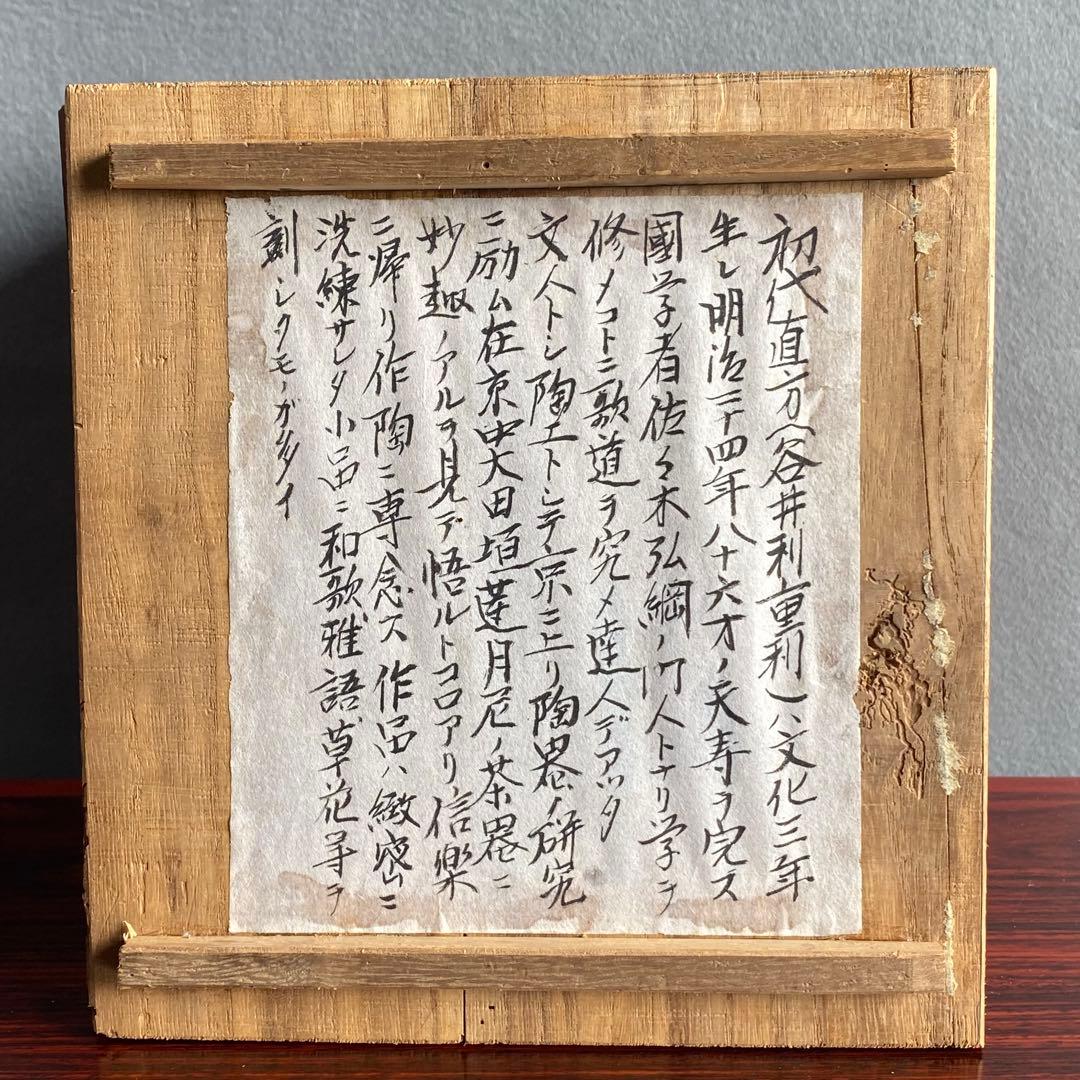 初代直方(谷井利重利)ハ文化三年
生レ明治二十四年八十六才ノ天寿ヲ完ズ
國学者佐々木弘綱ノ門人トナリ学ヲ
修メコトニ歌道ヲ究メ達人デアツタ
文人トシ陶工トシテ京ニ上リ陶器ノ研究
ニ励ム在京中大田垣蓮月尼ノ茶器ニ
妙趣ノアルヲ見テ悟ルトコロアリ信楽
ニ帰リ作陶ニ専念ス作品ハ緻密ニ
洗練サレタ小品ニ和歌雅語草花等ヲ
劃シタモノガ多イ